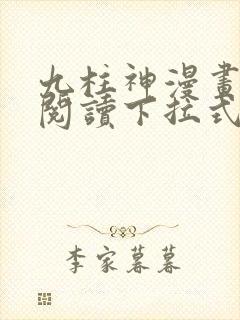 九柱神漫畫
閱讀下拉式
李家暮暮